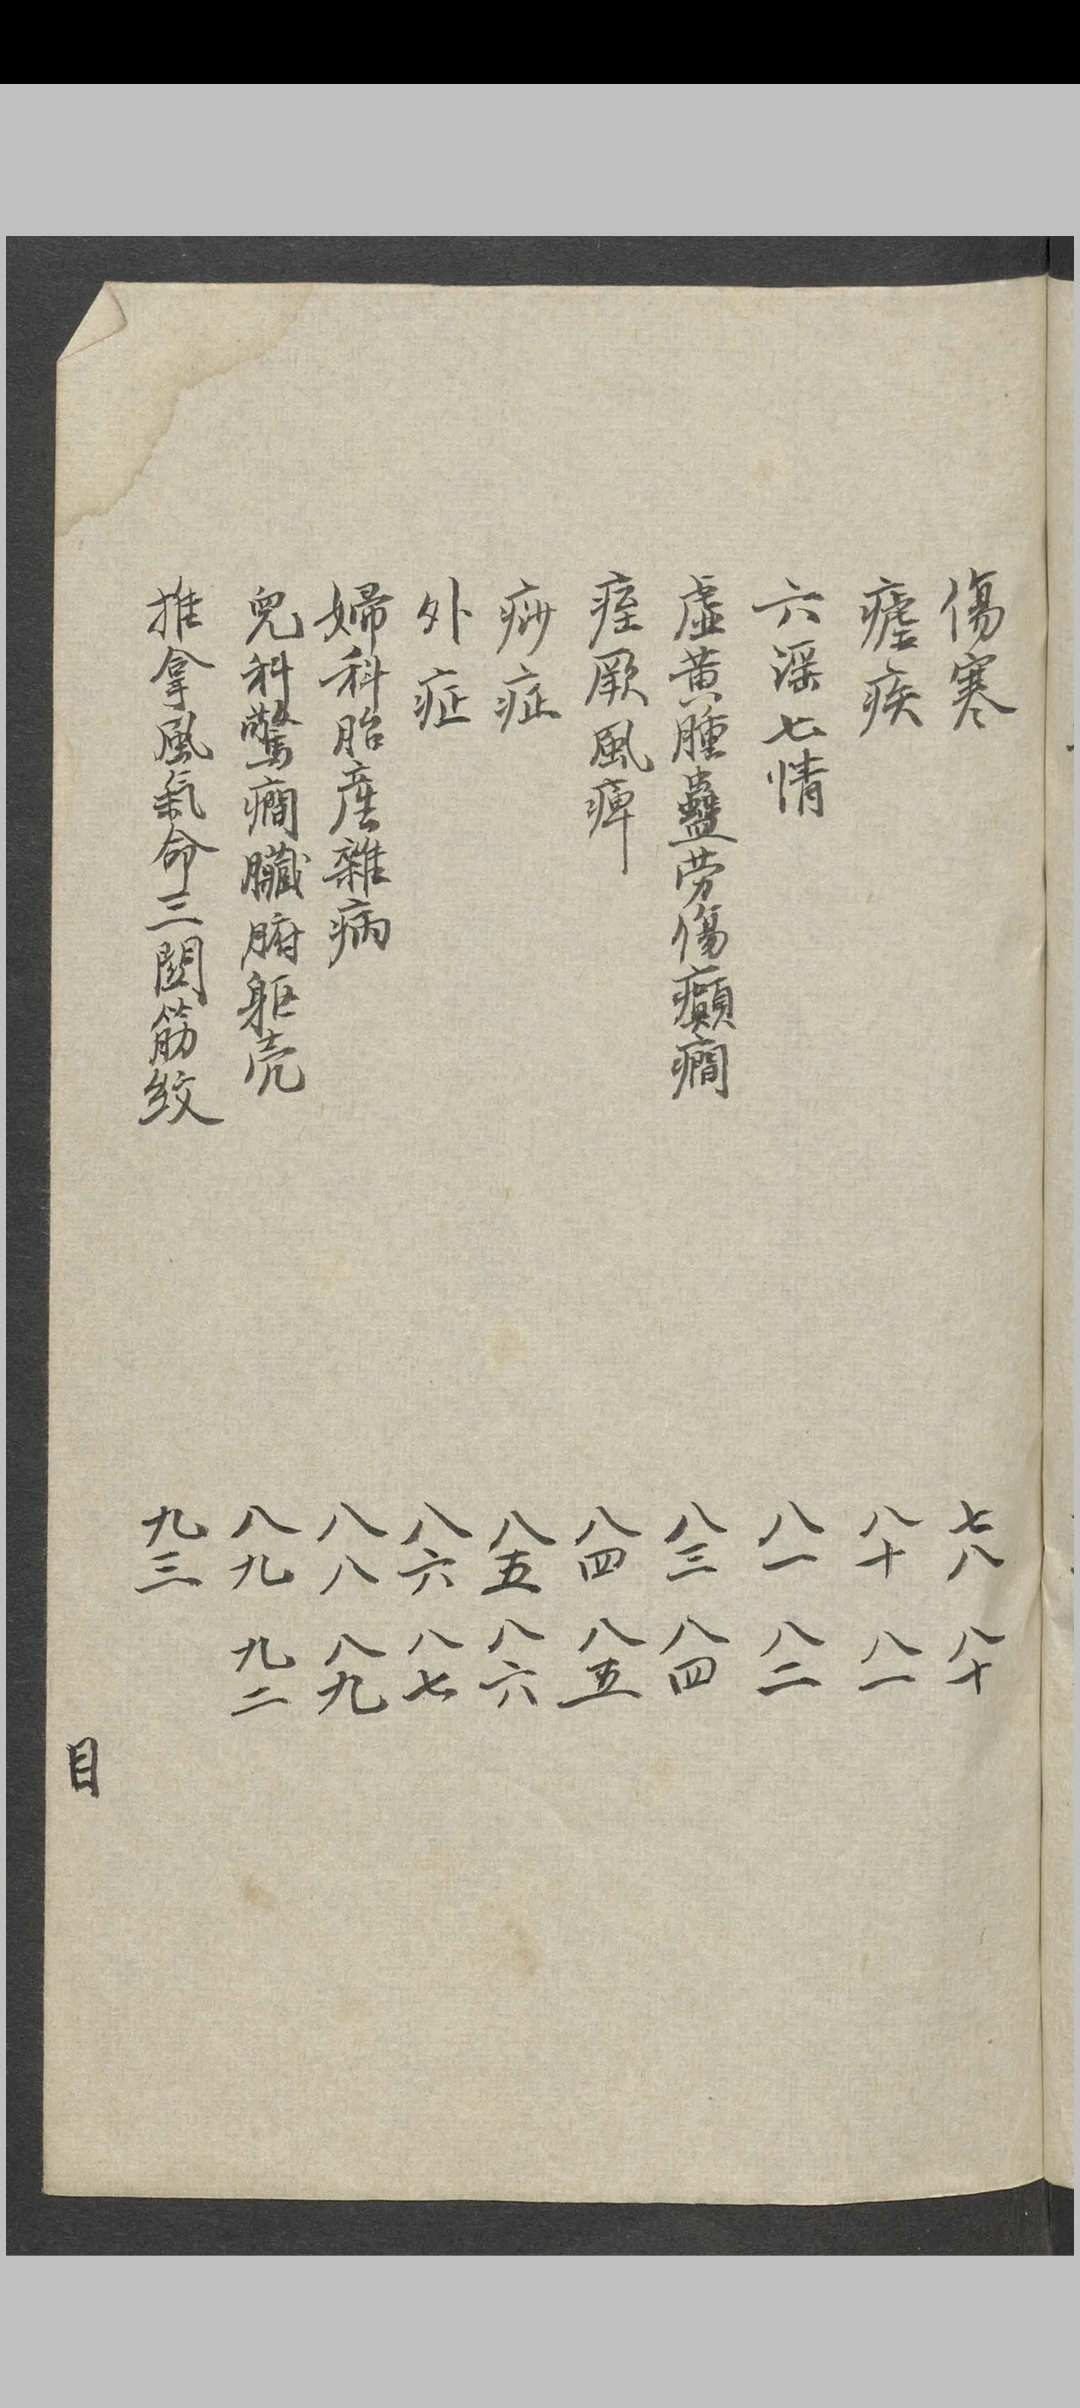 傷寒 七八 八十
瘧疾 八十 八一
六滛七情 八一 八二
虛黃腫蠱劳傷癲癇 八三 八四
痓厥風痺 八四 八五
痧症 八五 八六
外症 八六 八七
婦科胎產雜病 八八 八九
兒科驚癇臟腑軀壳 八九 九二
推拿風氣命三関筋紋 九三
目